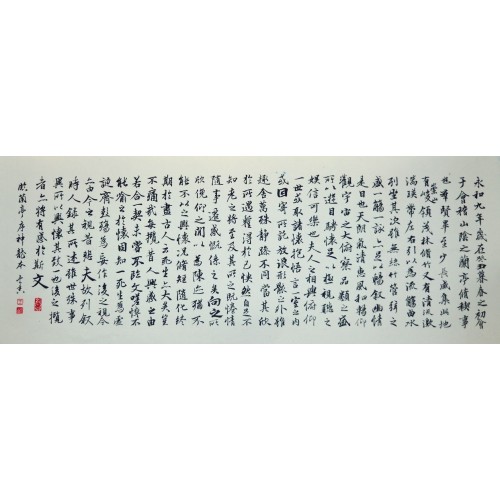 永和九年歲在癸丑暮春之初會
于會稽山陰之蘭亭脩禊事
也羣賢畢至少長咸集此地
有崇山峻領茂林脩竹又有清流激
湍暎帶左右引以為流觴曲水
列坐其次雖無絲竹管弦之
盛一觴一詠亦足以暢敘幽情
是日也天朗氣清惠風和暢仰
觀宇宙之大俯察品類之盛
所以遊目騁懷足以極視聽之
娛信可樂也夫人之相與俯仰
一世或取諸懷抱悟言一室之內
或因寄所託放浪形骸之外雖
趣舍萬殊靜躁不同當其欣
於所遇蹔得於己怏然自足不
知老之將至及其所之既惓情
隨事遷感慨係之矣向之所
欣俛仰之閒以為陳迹猶不
能不以之興懷況脩短隨化終
期於盡古人云死生亦大矣豈
不痛哉每攬昔人興感之由
若合一契未嘗不臨文嗟悼不
能喻之於懷固知一死生為虛
誕齊彭殤為妄作後之視今
亦由今之視昔悲夫故列敘
時人錄其所述雖世殊事
異所以興懷其致一也後之攬
者亦將有感於斯文
臨蘭亭序神龍本